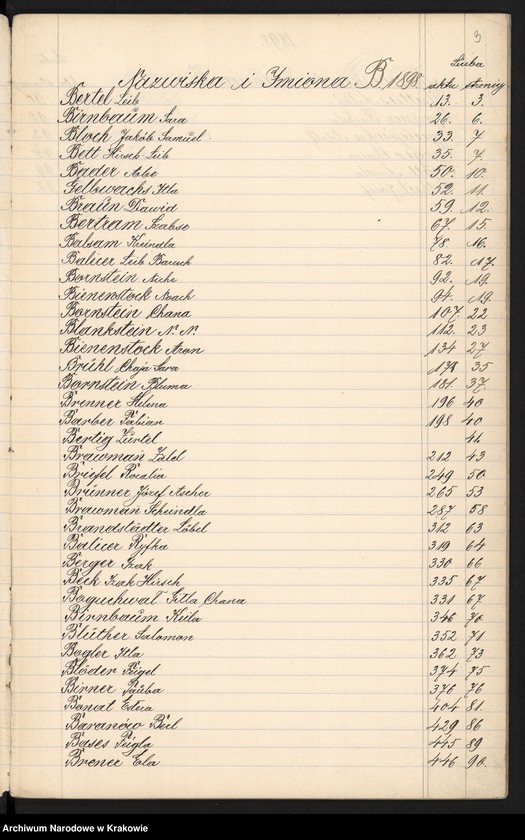 3
Liczba
Nazwiska i Imiona B 1898. aktu stronicy
Bertel Leib 13. 3.
Birnbaum Sara 26. 6.
Bloch Jakób Samuel 33. 7
Bett Hirsch-Leib 35. 7.
Bader 50. 10.
Gelbwachs Itla 52. 11.
Braun Dawid 59. 12.
Bertram Szabse 67. 15.
Balsam Kreindla 78. 16.
Balicer Leib Baruch 82. 17.
Bornstein 92. 19.
Bienenstock Noach 94. 19.
Bornstein Chana 107. 22
Blankstein N. N. 112. 23
Bienenstock Aron 134 27
Brühl Chaja Sara 178 35
Bornstein Bluma 181. 37.
Brenner Helena 196 40
Barber Fabian 198 40
Bertig 41.
Brawman 212 43
Briefel Rozalia 249 50
Brünner Józef Ascher 265 53
Brawman Scheindla 287 58
Brandstädter Löbel 312 63
Balicer Ryfka 319 64
Berger Izak 330 66
Beck Izak Hirsch 335 67
Boguchwał Gitla Chana 331 67
Birnbaum Keila 346 70
Blüther Salomon 352 71
Bogler Itla 362 73
Blöder Feigel 374 75
Birner Tauba 376 76
Bonat Estera 404 81
Baranów Berl 429 86
Bases Feigla 445 89
Brener Ela 446 90.
Archiwum Narodowe w Krakowie